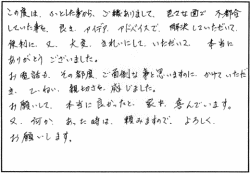 この度は、ひとした事から、ご縁ありまして、色々な面で不都合
していた事を、良き、アイデア、アドバイスで、解決していただいて、
便利に、又、大変、きれいにして、いただいて、本当に
ありがとうございました。
お電話も、その都度、ご面倒な事と思いますのに、かけていただ
き、ていねい、親しさを感じました。
お願いして、本当に良かったと、家中、喜んでいます。
又、何か、あった時は、頼みますので、よろしく、
お願いします。